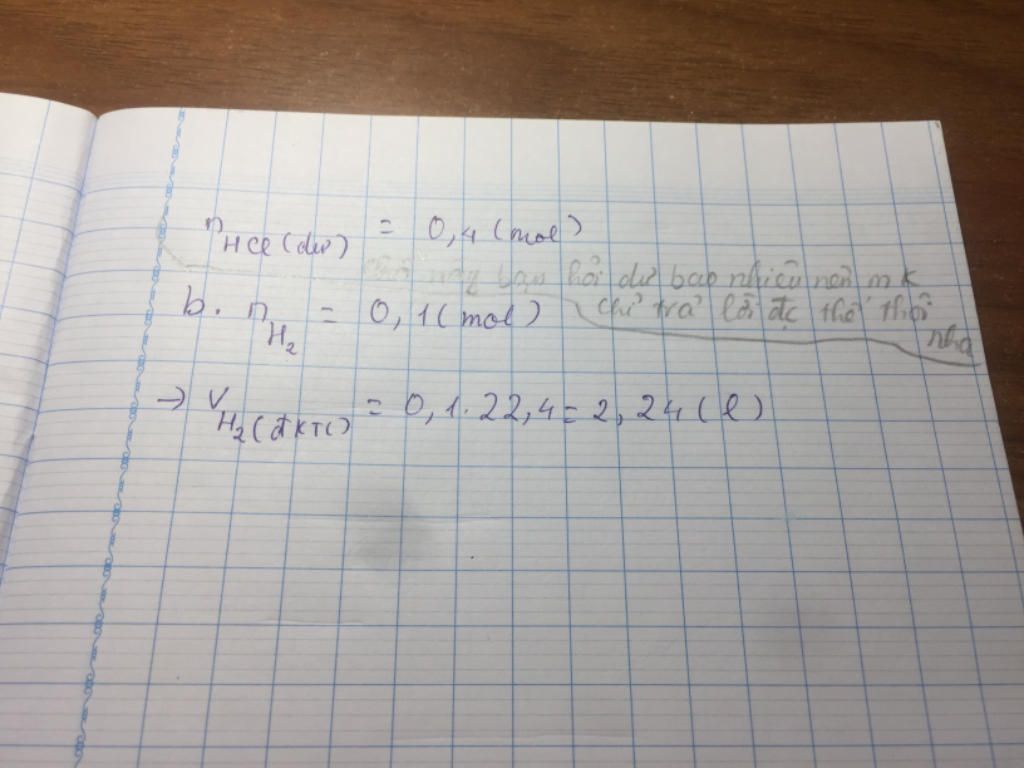 n HCl (dư) = 0,4 (mol)
chỗ này bạn hỏi dư bao nhiêu nên mk
chỉ trả lời đc thế thôi
nha
b. n H2 = 0,1 (mol)
→ V H2 (đKTC) = 0,1.22,4 = 2,24 (l)